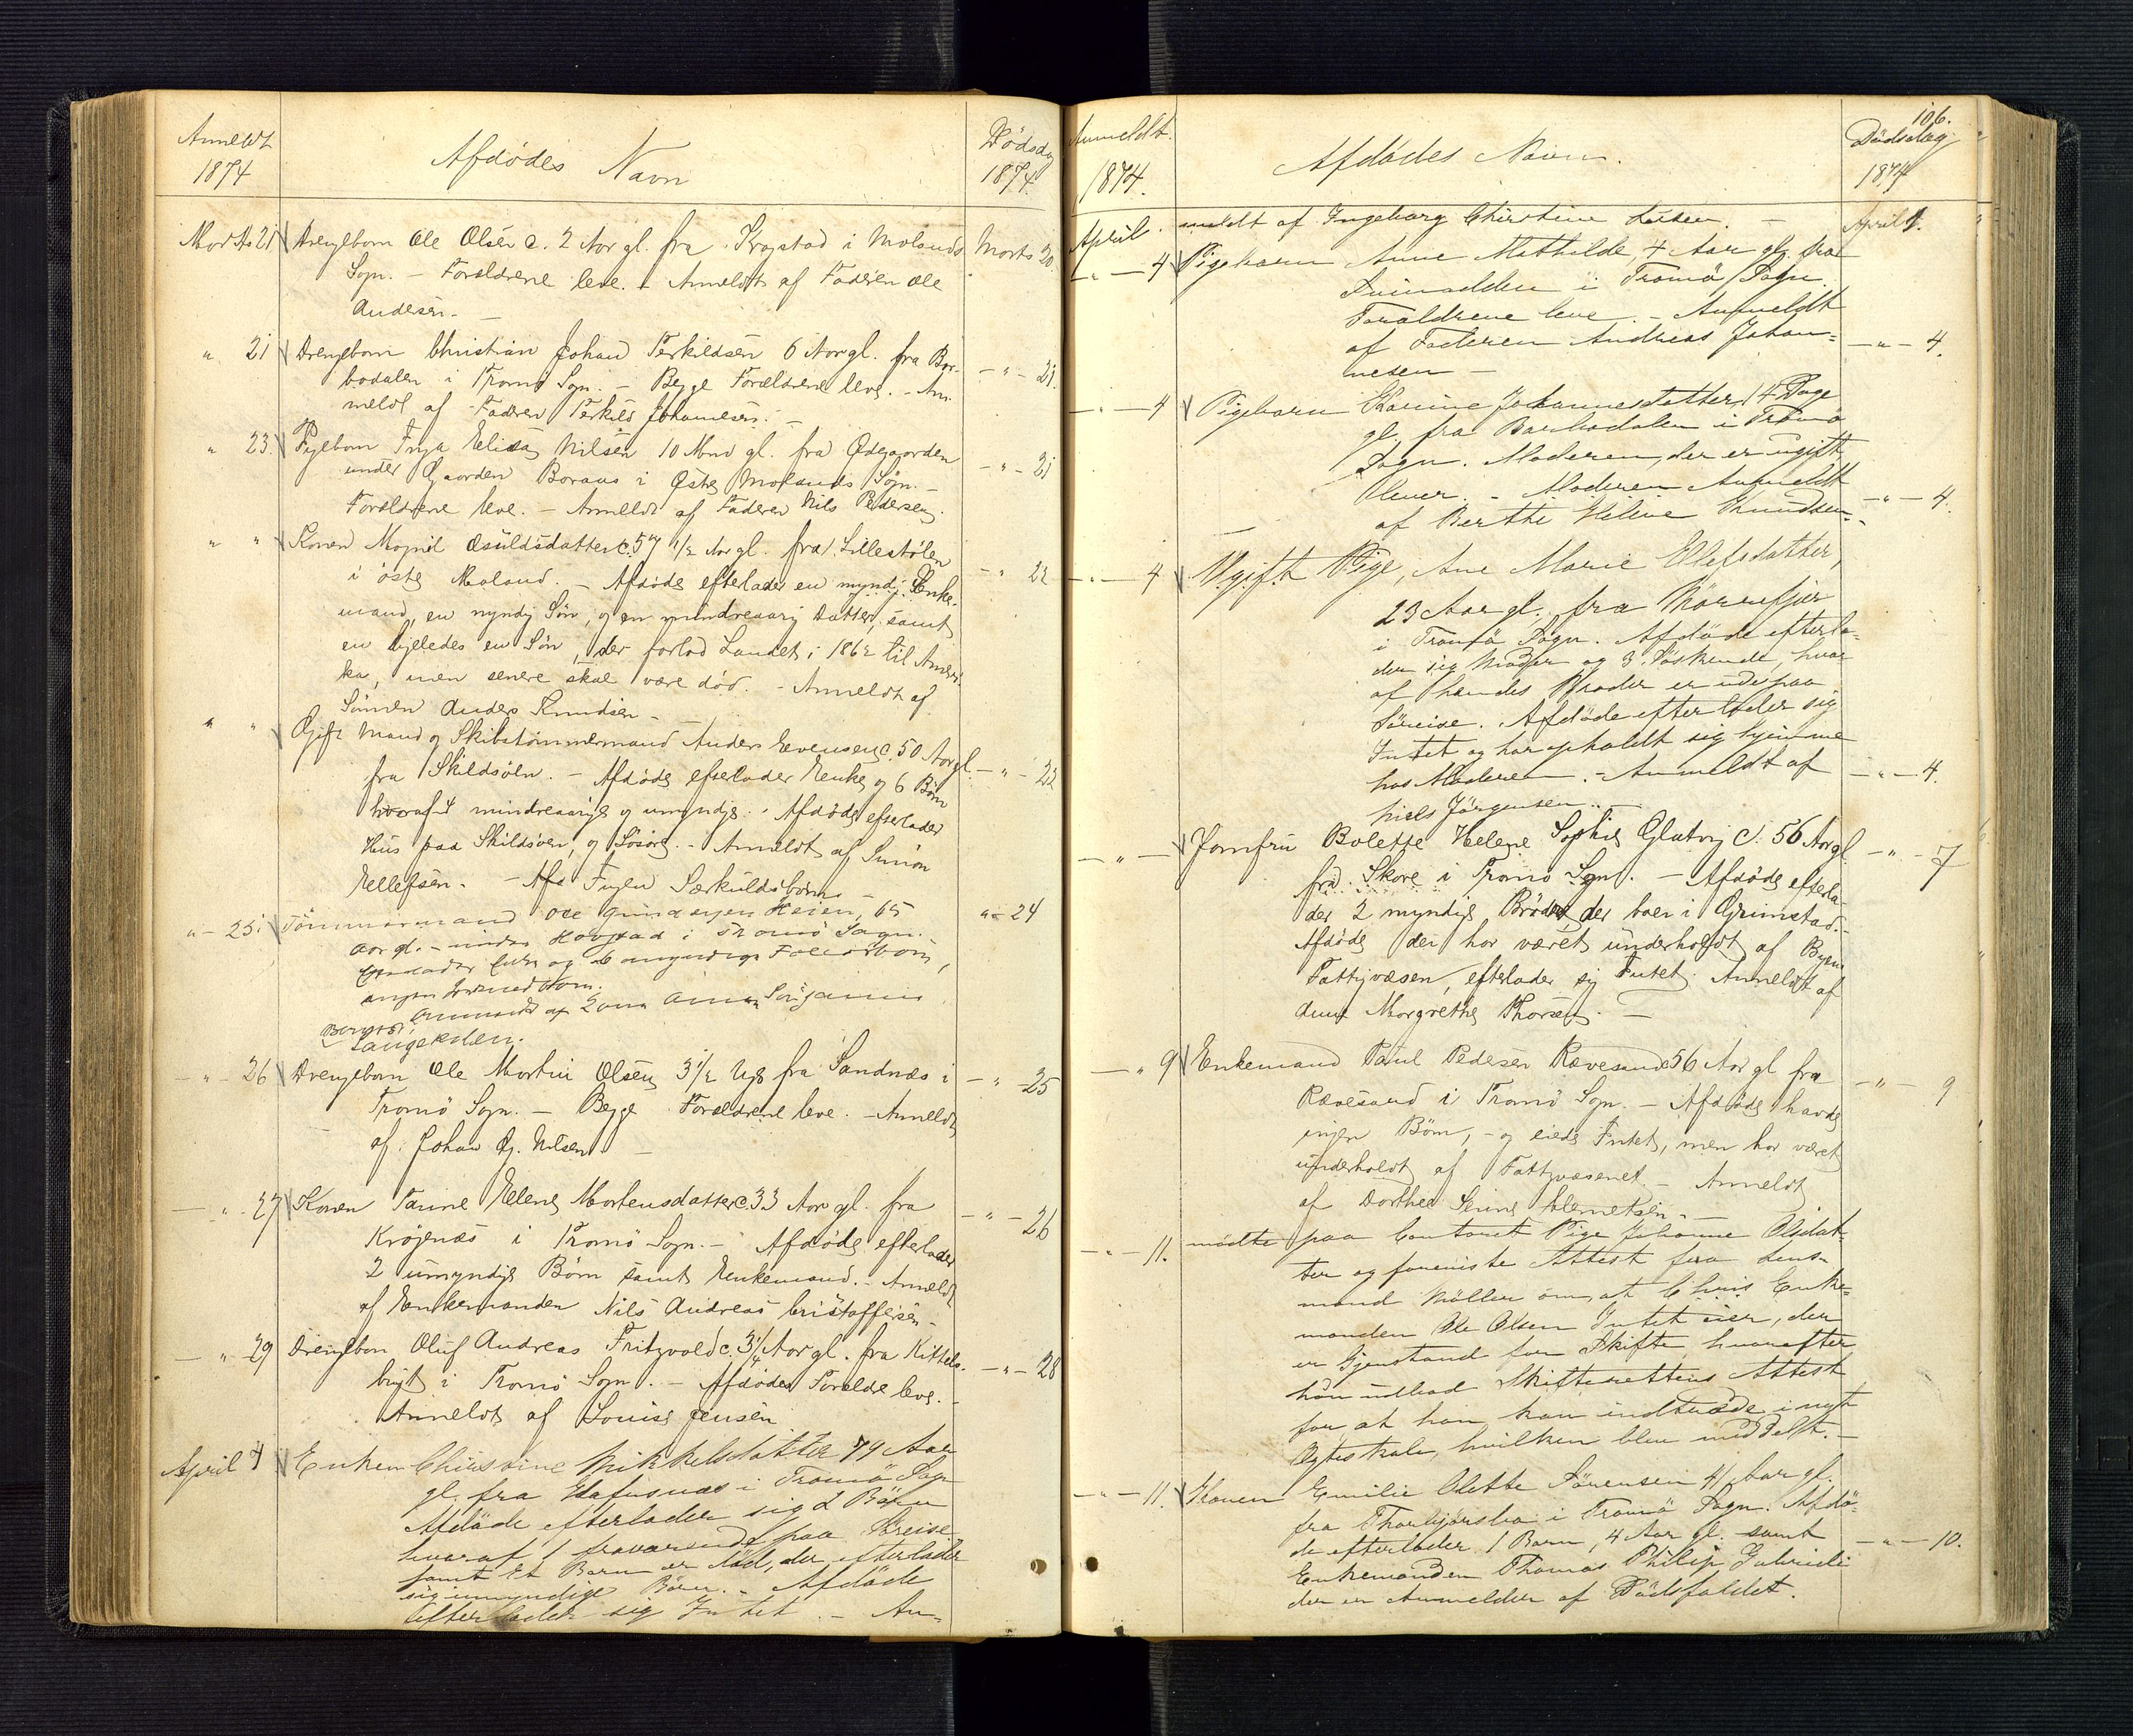 Anmeldt
1874
Afdødes Navn
Dødsdag
1874.
Marts 21 Drengebarn Ole Olsen c. 2 Aar gl. fra Krogstad i Molands Marts 20.
Sogn. - Forældrene leve. - Anmeldt af Faderen Ole
Andersen. -
" 21 Drengebarn Christian Johan Terkildsen 6 Aar gl. fra Bar-
bodalen i Tromø Sogn. - Begge Forældrene leve. - An- - " - 21.
meldt af Faderen Terkild Johannesen. -
" 23. Pigebarn Inga Elisa Nilsen 10 Mnd gl. fra Ødegaarden
under Gaarden Boraas i Østre Molands Sogn. - - " - 21
Forældrene leve. - Anmeldt af Faderen Nils Pedersen.
" " Konen Magnil Osuldsdatter c. 57 1/2 Aar gl. fra Lillestølen
i østre Moland. - Afdøde efterlader en myndig Enke- - " 22
mand, en myndig Søn, og en mindreaarig Datter, samt
en ligeledes en Søn, der forlod Landet i 1862 til Ameri-
ka, men senere skal være død. - Anmeldt af
Sønnen Anders Knudsen -
" " Gift Mand og Skibstømmermand Anders Evensen c. 50 Aar gl.
fra Skildsøen. - Afdøde efterlader Enke og 6 Børn - " - 23
hvoraf 4 mindreaarige og umyndige. - Afdøde efterlader
Hus paa Skildsøen, og Løsøre. - Anmeldt af Simon
Ellefsen. - Afd Ingen Særkuldsbørn -
" - 25 Tømmermand Ole Gundersen Heien, 65 " - 24
Aar gl. - under Hovstad i Tromø Sogn.
Efterlader Enke og 6 myndige Fællesbørn,
ingen
Anmeldt af Anna
Langekilen.
" - 26 Drengebarn Ole Martin Olsen 3 1/2 Uge fra Sandnæs i - " - 25
Tromø Sogn. - Begge Forældrene leve. - Anmeldt
af Johan G. Nilsen. -
- " - 27 Konen Tarine Elene Mortensdatter c. 33 Aar gl. fra - " - 26
Krøgenæs i Tromø Sogn. - Afdøde efterlader
2 umyndige Børn samt Enkemand. - Anmeldt
af Enkemanden Nils Andreas Cristoffersen -
- " 29 Drengebarn Oluf Andreas Fritzvold c. 3 1/4 Aar gl. fra Kittels- - " - 28
bugt i Tromø Sogn. - Afdødes Forældre leve. -
Anmeldt af Louise Jensen
April 4 Enken Christine Mikkelsdatter 79 Aar
gl. fra Hafusnæs i Tromø Sogn
Afdøde efterlader sig 2 Børn
hvoraf 1 fraværende paa Søreise
samt et Barn er død, der efterlader
sig umyndige Børn. - Afdøde
efterlader sig Intet. - An-
106.
Anmeldt.
1874.
Afdødes Navn.
Dødsdag
1874
April. meldt af Ingeborg Christine Larsen. - April 1.
- " - 4 Pigebarn Anne Mathilde, 4 Aar gl. fra
i Tromø Sogn.
Forældrene leve. - Anmeldt
af Faderen Andreas Johan= - " - 4.
nesen -
- " - 4 Pigebarn Karine Johannesdatter, 14 Dage
gl. fra Barbodalen i Tromø
Sogn. Moderen, der er ugift,
lever. - Moderen Anmeldt
af Berthe Helene Knudsen. - " - 4.
- " - 4 Ugift Pige, Ane Marie Ellefsdatter,
23 Aar gl. fra Narrefjær
i Tromø Sogn. Afdøde efterla-
der sig Moder og 3 Søskende, hvor
af hendes Broder er ude paa
Søreise. Afdøde efterlader sig
Intet og har opholdt sig hjemme
hos Moderen. - Anmeldt af - " - 4.
Niels Jørgensen. -
- " - Jomfru Bolette Helene Sophie Glatvig c. 56 Aar gl. - " - 7
fra Skare i Tromø Sogn. - Afdøde efterla-
der 2 myndige Brødre der boer i Grimstad. -
Afdøde der har været underholdt af Byens
Fattigvæsen, efterlader sig Intet. Anmeldt af
Anne Margrethe Thorsen. -
- " 9 Enkemand Paul Pedersen Rævesand 56 Aar gl fra - " - 9
Rævesand i Tromø Sogn. - Afdøde havde
ingen Børn, - og eiede Intet, men har været
underholdt af Fattigvæsenet. - Anmeldt
af Dorthea Sevine Clemetsen. -
- " - 11. mødte paa Contoret Pige Johanne Olsdat-
ter og foreviste Attest fra Lens-
mand Møller om, at Enke-
manden Ole Olsen Intet eier, der
er Gjenstand for Skifte, hvorefter
hun udbad Skifterettens Attest
for, at han kan indtræde i nyt
Ægteskab, hvilken blev meddelt. -
- " - 11. Konen Emilie Olette Sørensen 41 Aar gl.
fra Thorbjørnsbo i Tromø Sogn. Afdø-
de efterlader 1 Barn, 4 Aar gl. samt - " - 10.
Enkemanden Thomas Philip Gabrieli
der er Anmelder af Dødsfaldet.